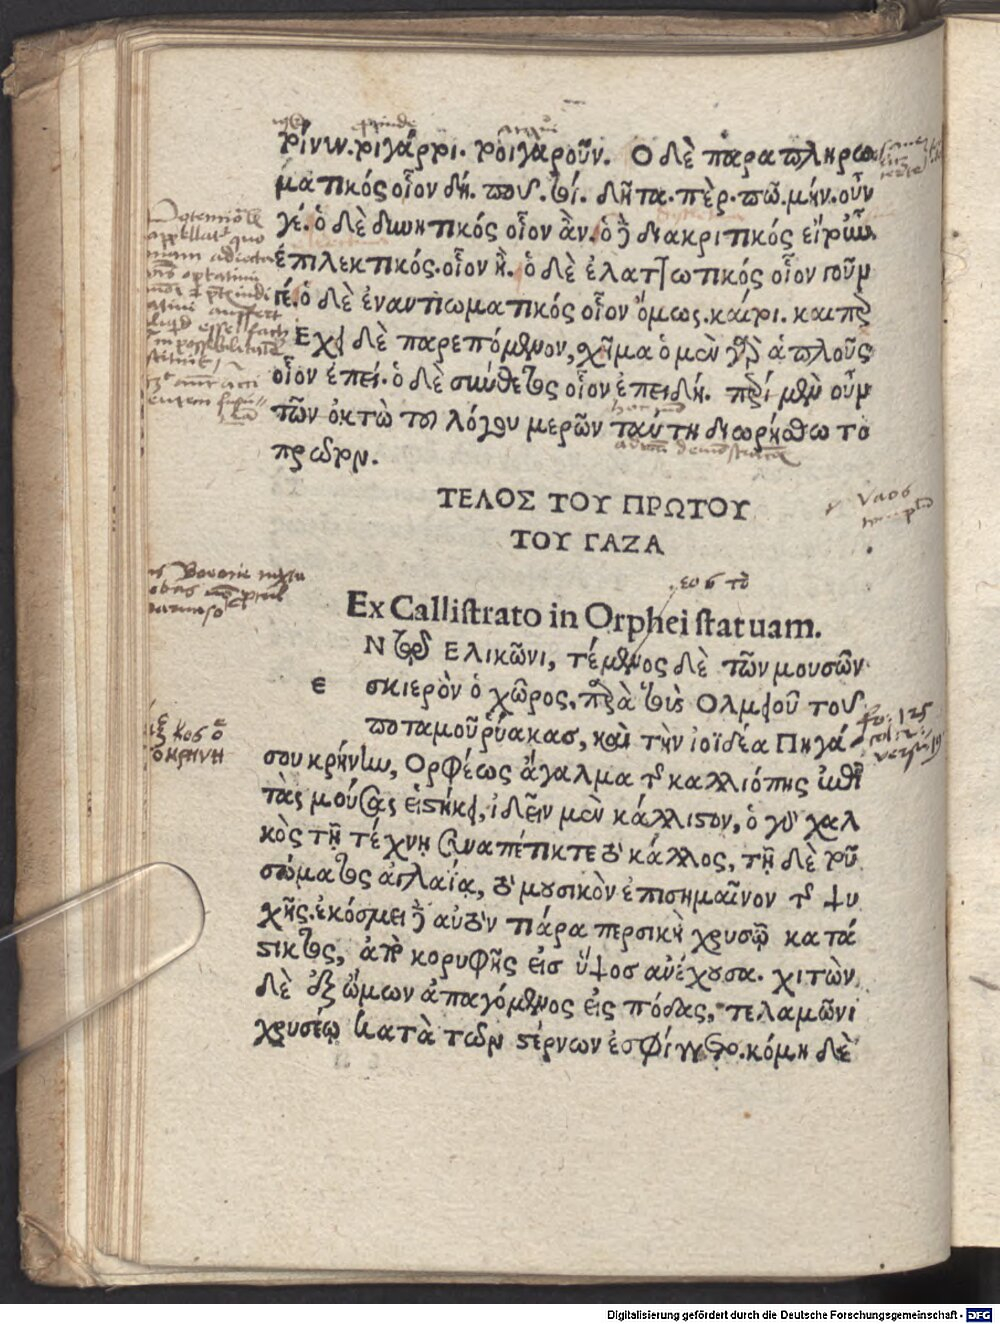 τοίνυν. τοιγάρτοι. τοιγαροῦν. Ο δὲ παραπληρω
ματικός οἷον δή. που. τί. δῆτα. πὲρ. πῶ. μήν. οὖν
γέ. ὁ δὲ δυνητικός οἷον ἂν. ὁ δὲ διακριτικός εἴτουν
ἐπιλεκτικός. οἷον ἢ. ὁ δὲ ἐλαττωτικός οἷον τοῦν
γέ. ὁ δὲ ἐναντιωματικός οἷον ὅμως. καίτοι. καιπερ
Εχει δὲ παρεπόμενον, σχῆμα ὁ μὲν γὰρ ἁπλοῦς
οἷον ἐπεί. ὁ δὲ σύνθετος οἷον ἐπειδή. περί μὲν οὖν
τῶν ὀκτὼ του λόγου μερῶν ταύτη διωρίσθω το
πρῶτον.
ΤΕΛΟΣ ΤΟΥ ΠΡΩΤΟΥ
ΤΟΥ ΓΑΖΑ
Ex Callistrato in Orphei statuam.
ε Ν τῷ Ελικῶνι, τέμενος δὲ τῶν μουσῶν
σκιερὸν ὁ χῶρος, παρὰ τοὺς Ολμειοῦ του
ποταμοῦ ῥύακας, καὶ τὴν ἰοϊδέα Πηγά
σου κρήνην, Ορφέως ἄγαλμα τοῦ καλλιόπης παρὰ
τὰς μούσας εἱστήκει, ἰδεῖν μὲν κάλλιστον, ὁ γὰρ χαλ
κὸς τῇ τέχνῃ συναπέτικτε τὸ κάλλος, τῇ δὲ τοῦ
σώματος ἀγλαΐᾳ, τὸ μουσικὸν ἐπισημαῖνον τῆς ψυ
χῆς. ἐκόσμει δὲ αὐτὸν τιάρα περσικὴ χρυσῷ κατά
στικτος, ἀπὸ κορυφῆς εἰς ὕψος ἀνέχουσα. χιτὼν
δὲ ἐξ ὤμων ἀπαγόμενος εἰς πόδας, τελαμῶνι
χρυσέῳ κατὰ τῶν στέρνων ἐσφίγγετο. κόμη δὲ
Digitalisierung gefördert durch die Deutsche Forschungsgemeinschaft - DFG